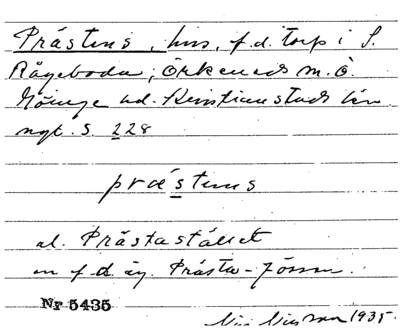 Prästens, hus, f.d. torp i S.
Rågeboda, Örkeneds sn. Ö.
Göinge hd. Kristianstads län
ngt. S. 228
præstens
al. Prästastället
en f.d. äg. Prästa-Jönsson.
Nr 5435
1935.